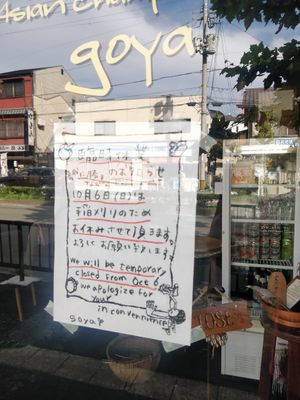 Asian champ
goya
臨時休業
のお知らせ
10月6日(日)は
稲刈りのため
お休みさせて頂きます。
よろしくお願い致します
We will be temporary
closed from Oct 6
we apologize for
your
inconvenience
goya